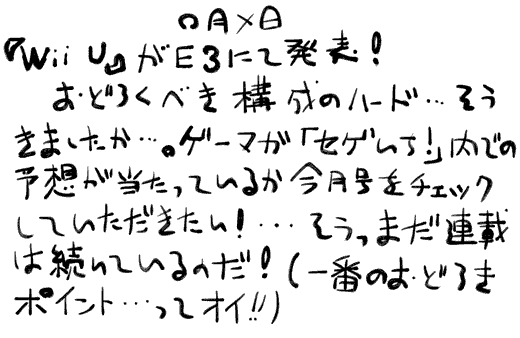 〇月×日
『Wii U』がE3にて発表！
おどろくべき構成のハード…そう
きましたか…。ゲーマガ「セゲいち!」内での
予想が当たっているか今月号をチェック
していただきたい！…そうっまだ連載
は続いているのだ！（一番のおどろき
ポイント…ってオイ!!）